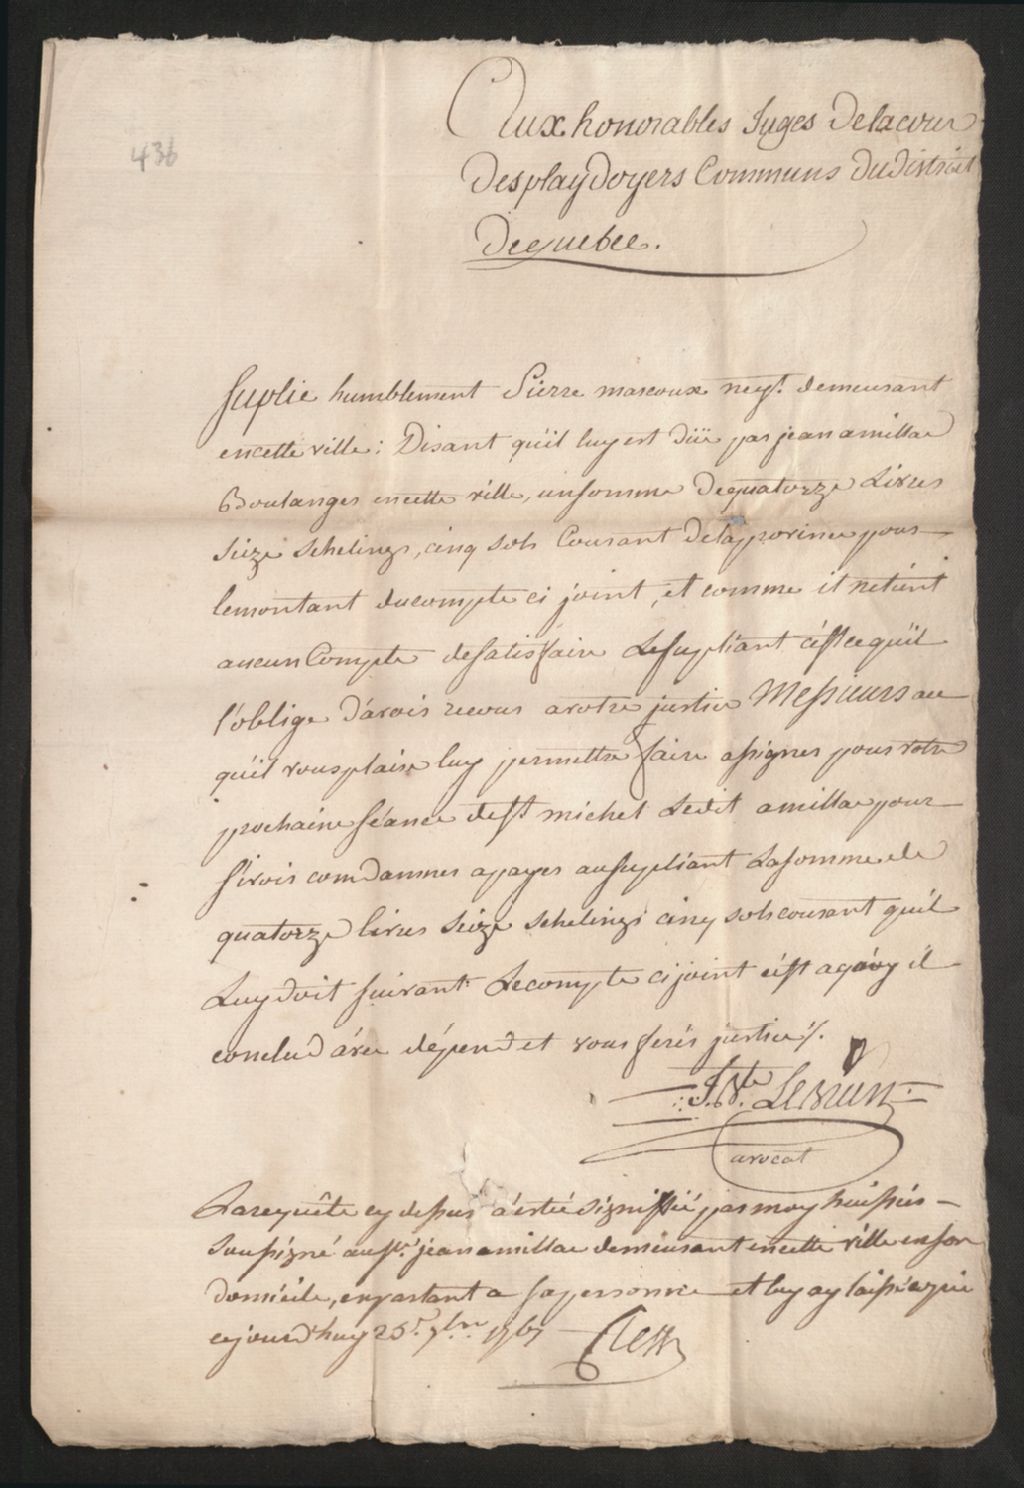 436
Aux honorables Juges De la cour
Des playdoyers Communs Du district
De quebec.
Suplie humblement Pierre marcoux negt. demeurant
en cette ville: Disant qu'il luy est Düe par jean amillar
Boulanger en cette ville, un somme De quatorze Livres
Seize Schelings, cinq sols Courant De la province pour
le montant du compte ci joint, et comme il ne tient
aucun Compte de satisfaire Le supliant c'est ce qui
l'oblige D'avoir recours a votre justice Messieurs a ce
qu'il vous plaise luy permettre faire assigner pour votre
prochaine séance de st michel Ledit amillar pour
s'i voir comdamner a payer au supliant La somme de
quatorze livres Seize Schelings cinq sols courant qu'il
Luy doit suivant Le compte ci joint c'est a quoy il
conclud avec dépend et vous ferés justice /.
J. Bte LeBrun
avocat
La requête cy dessus a esté signifié par moy huissier
Soussigné au sr. jean amillar demeurant en cette ville en son
domicile, en parlant a sa personne et luy ay laissé copie
ce jourd'huy 25r. 7bre 1767